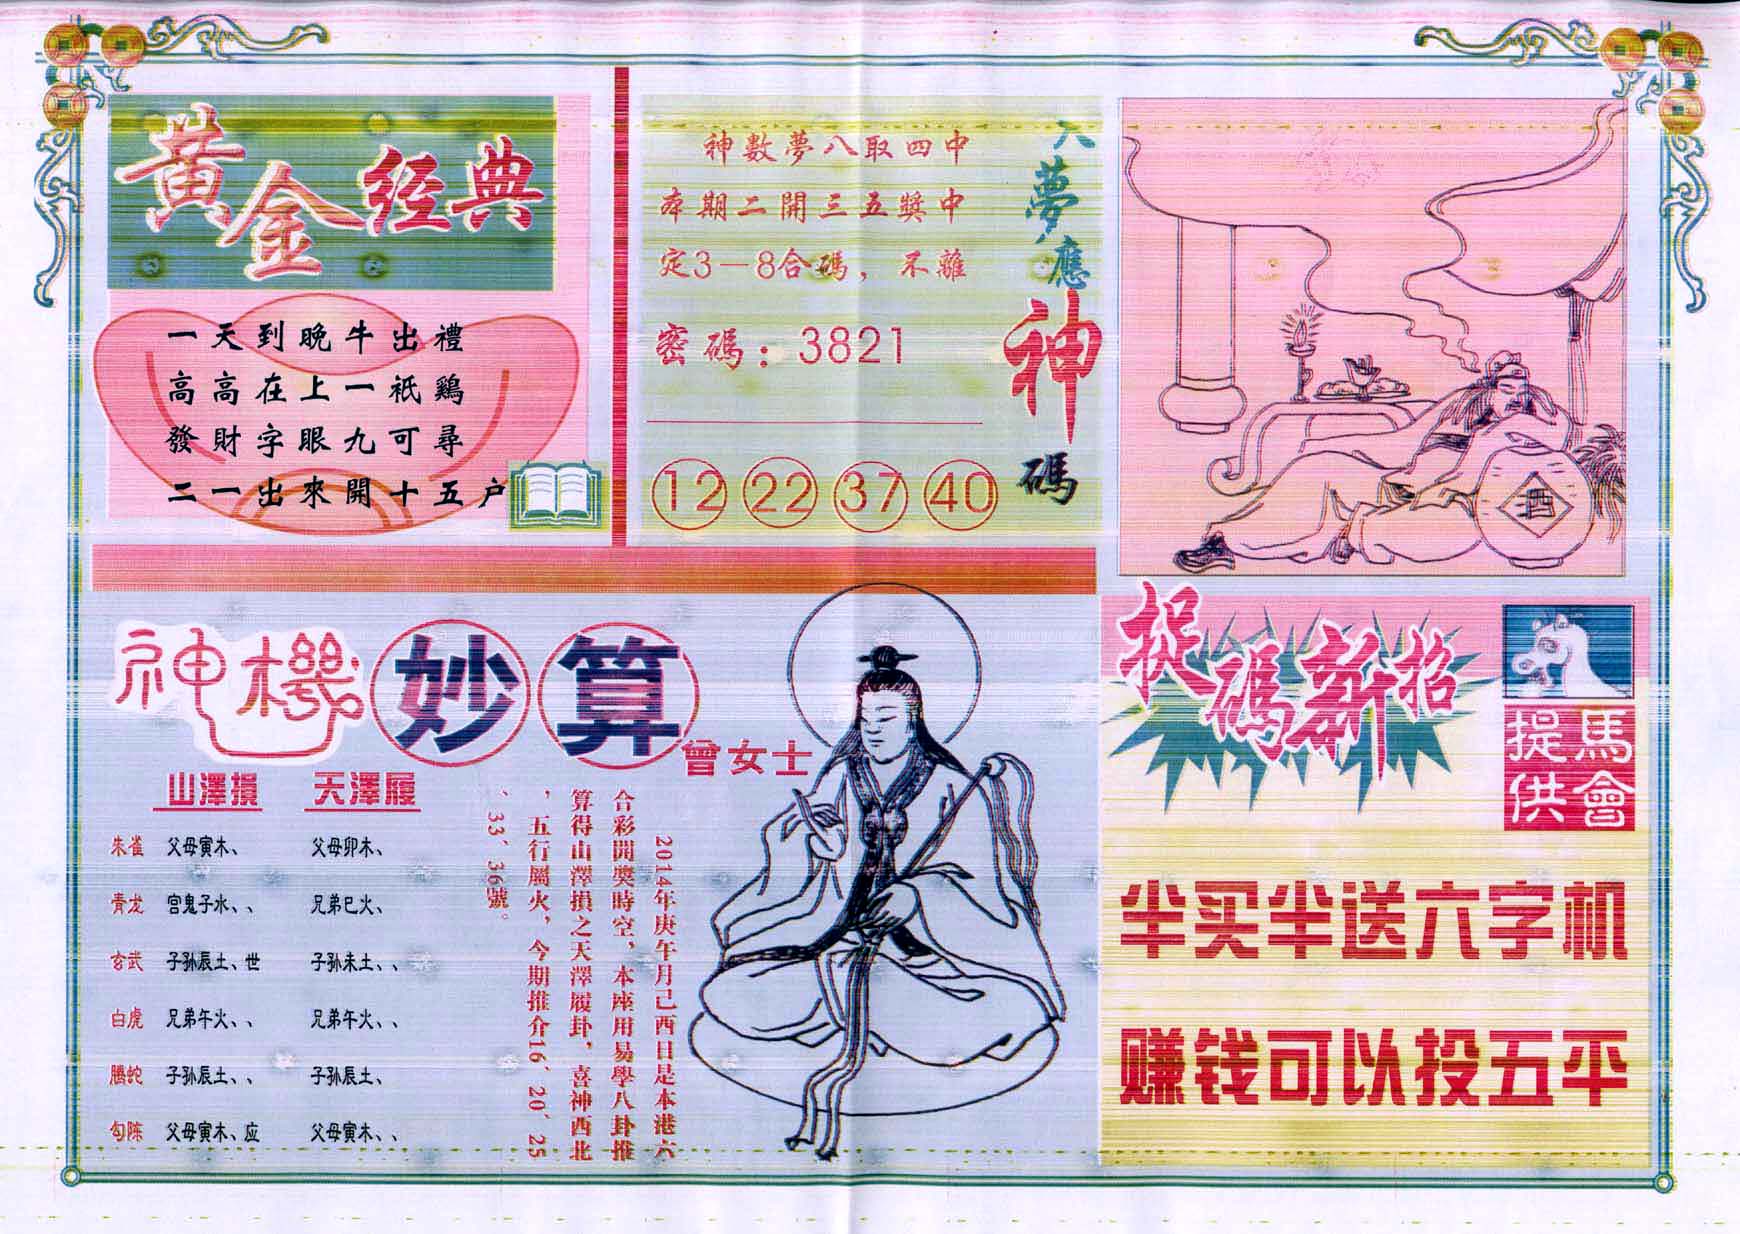 黃金經典
一天到晚牛出禮
高高在上一衹鷄
發財字眼九可尋
二一出來開十五户
神數夢八取四中
本期二開三五獎中
定3－8合碼，不離
密碼：3821
12 22 37 40
入夢應神碼
酒
神機妙算
曾女士
山澤損 天澤履
朱雀 父母寅木、 父母卯木、
青龙 宫鬼子水、、 兄弟巳火、
玄武 子孙辰土、世 子孙未土、、
白虎 兄弟午火、、 兄弟午火、、
腾蛇 子孙辰土、、 子孙辰土、
勾陈 父母寅木、应 父母寅木、、
2014年庚午月己酉日是本港六
合彩開獎時空，本座用易學八卦推
算得山澤損之天澤履卦，喜神西北
，五行屬火，今期推介16、20、25
、33、36號。
捉碼新招
馬會提供
半买半送六字机
赚钱可以投五平